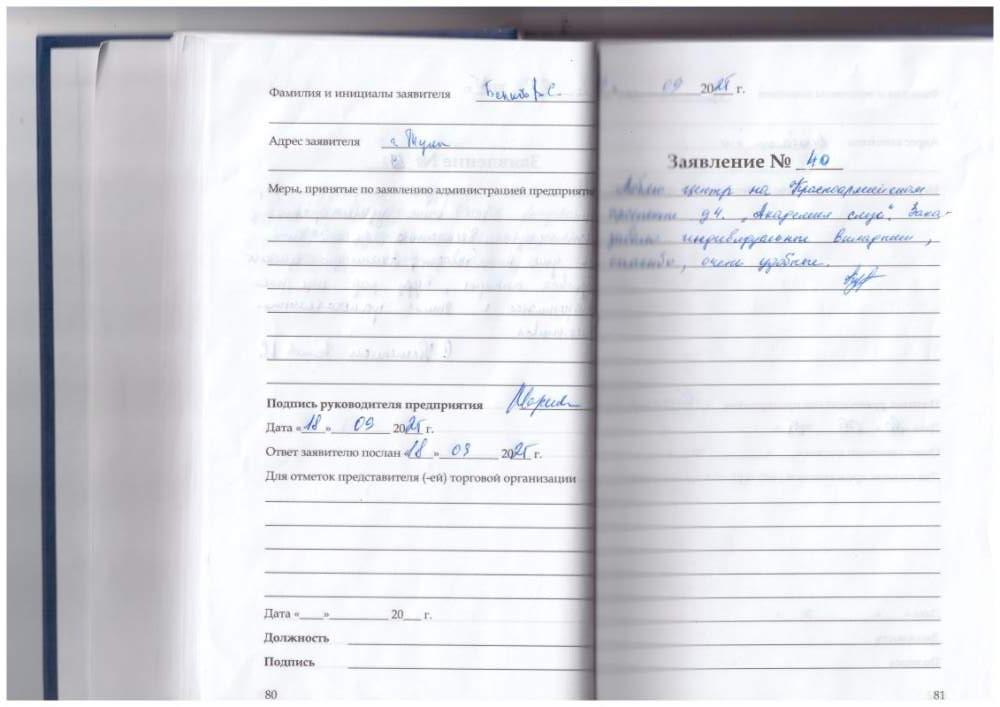 Фамилия и инициалы заявителя
Адрес заявителя г. Тула
Меры, принятые по заявлению администрацией предприяти
Подпись руководителя предприятия
Дата «18» 09 2025 г.
Ответ заявителю послан «18» 09 2025 г.
Для отметок представителя (-ей) торговой организации
Дата «___»__________ 20___ г.
Должность
Подпись
80
09 2025 г.
Заявление № 40
центр на Красноармейском
проспекте д4. „Академия слуха“. Зака-
индивидуальные вкладыши,
спасибо, очень удобные.
81